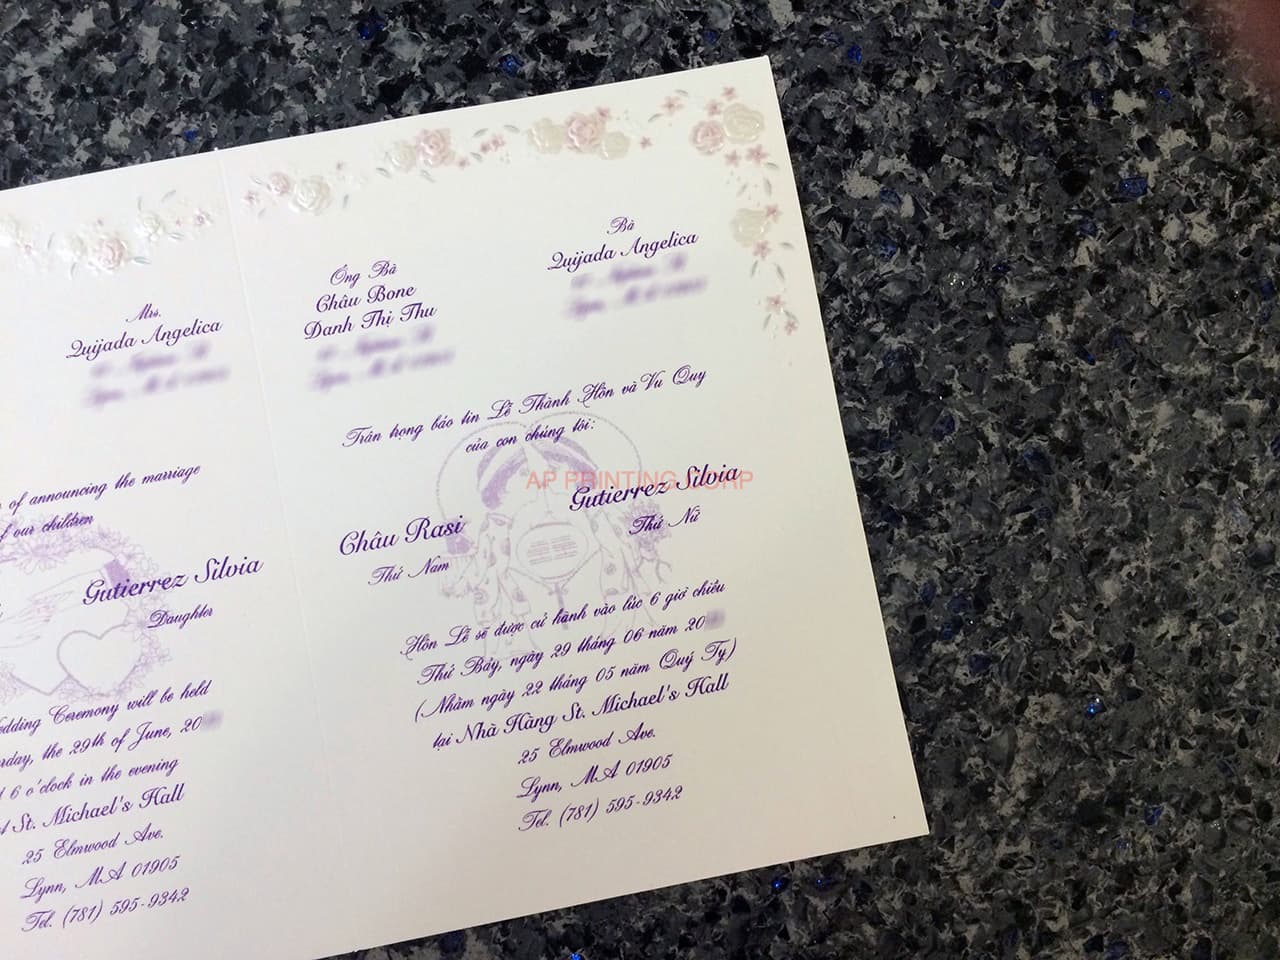 Mrs.
Quijada Angelica
of announcing the marriage
of our children
Gutierrez Silvia
Daughter
Wedding Ceremony will be held
the 29th of June, 20
6 o'clock in the evening
St. Michael's Hall
25 Elmwood Ave.
Lynn, MA 01905
Tel. (781) 595-9342
Ông Bà
Châu Bone
Danh Thị Thu
Bà
Quijada Angelica
Trân trọng báo tin Lễ Thành Hôn và Vu Quy
của con chúng tôi:
AP PRINTING CORP
Châu Rasi
Thứ Nam
Gutierrez Silvia
Thứ Nữ
Hôn Lễ sẽ được cử hành vào lúc 6 giờ chiều
Thứ Bảy, ngày 29 tháng 06 năm 20
(Nhằm ngày 22 tháng 05 năm Quý Tỵ)
tại Nhà Hàng St. Michael's Hall
25 Elmwood Ave.
Lynn, MA 01905
Tel. (781) 595-9342